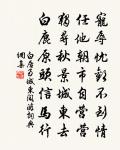 寵辱忧歡不到情
任他朝市自營營
獨尋秋景城東去
白鹿原頭信馬行
白居易城東閒游詩詞典
網集